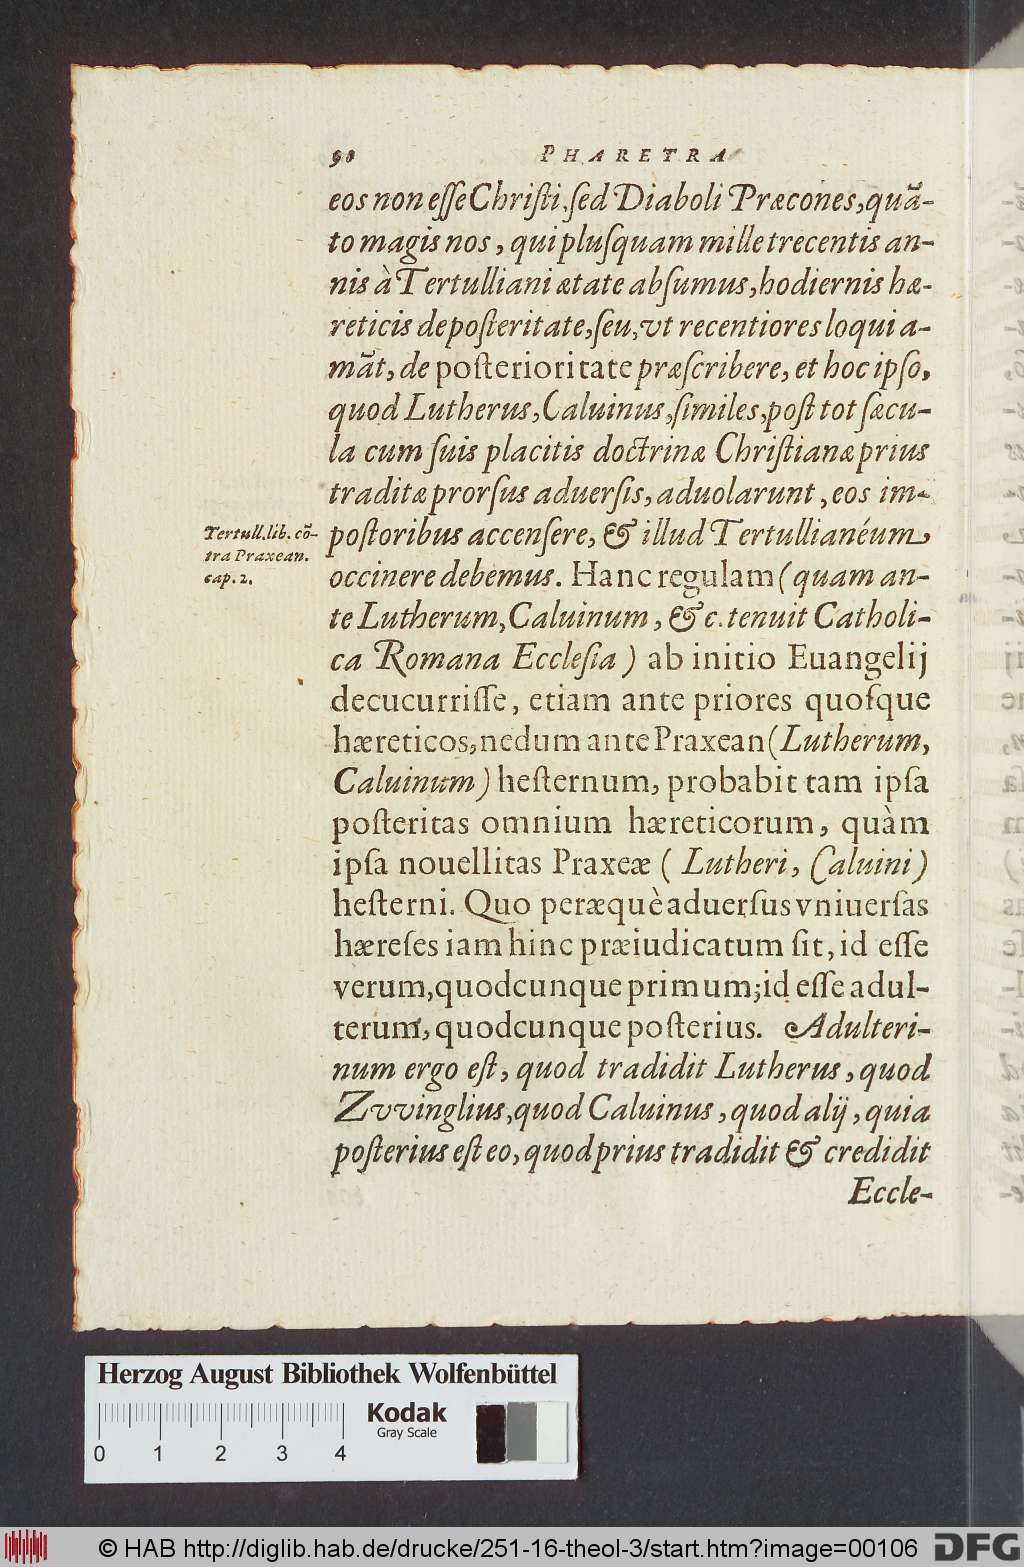 98 PHARETRA
eos non eſſe Chriſti, ſed Diaboli Præcones, quã-
to magis nos, qui pluſquam mille trecentis an-
nis à Tertulliani ætate abſumus, hodiernis hæ-
reticis de poſteritate, ſeu, vt recentiores loqui a-
mãt, de poſterioritate præſcribere, et hoc ipſo,
quod Lutherus, Caluinus, ſimiles, poſt tot ſæcu-
la cum ſuis placitis doctrinæ Chriſtianæ prius
traditæ prorſus aduerſis, aduolarunt, eos im-
poſtoribus accenſere, & illud Tertullianéum
Tertull. lib. cõ-
tra Praxean.
cap. 2.
occinere debemus. Hanc regulam (quam an-
te Lutherum, Caluinum, &c. tenuit Catholi-
ca Romana Eccleſia) ab initio Euangelij
decucurriſſe, etiam ante priores quoſque
hæreticos, nedum ante Praxean (Lutherum,
Caluinum) heſternum, probabit tam ipſa
poſteritas omnium hæreticorum, quàm
ipſa nouellitas Praxeæ (Lutheri, Caluini)
heſterni. Quo peræquè aduerſus vniuerſas
hæreſes iam hinc præiudicatum ſit, id eſſe
verum, quodcunque primum; id eſſe adul-
terum, quodcunque poſterius. Adulteri-
num ergo eſt, quod tradidit Lutherus, quod
Zvvinglius, quod Caluinus, quod alij, quia
poſterius eſt eo, quod prius tradidit & credidit
Eccle-
Herzog August Bibliothek Wolfenbüttel
0 1 2 3 4
Kodak
Gray Scale
© HAB http://diglib.hab.de/drucke/251-16-theol-3/start.htm?image=00106
DFG